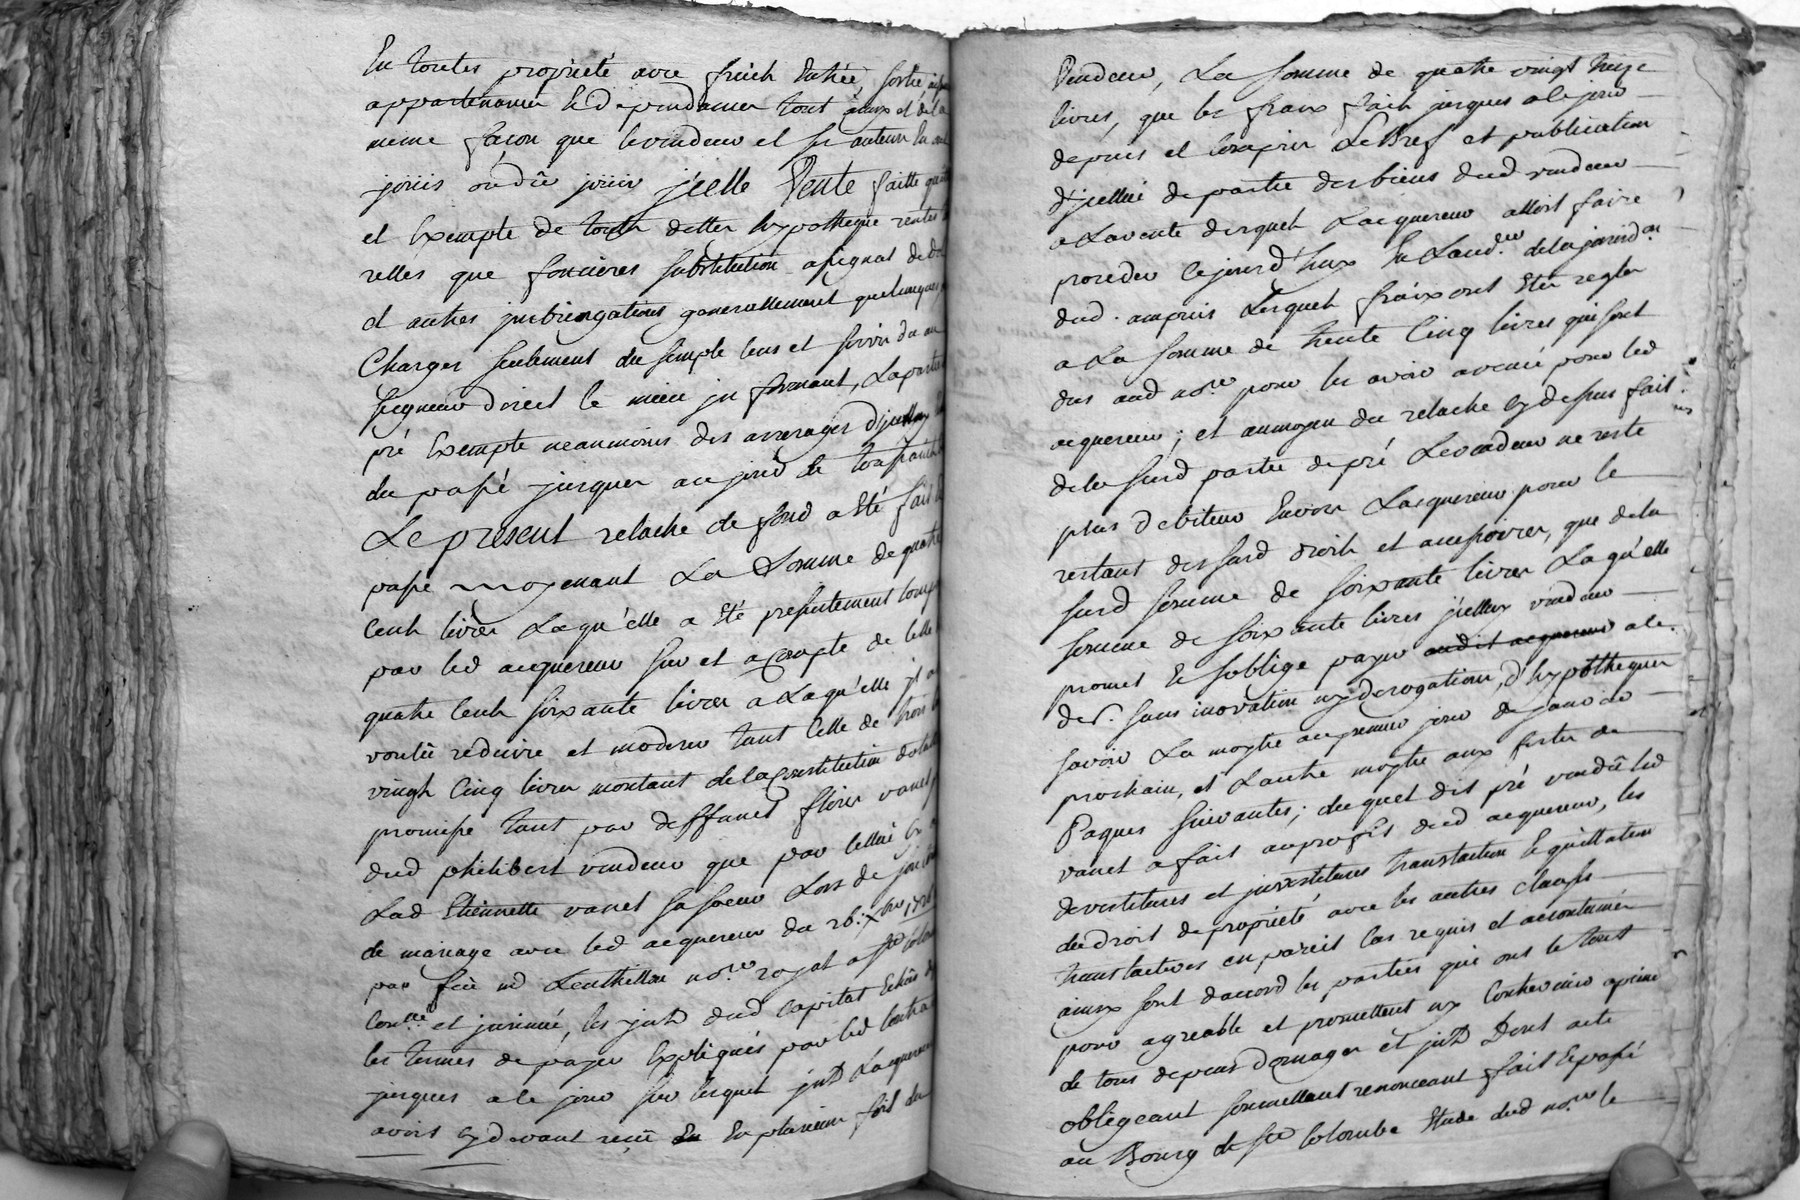 En toutes proprieté avec fruich Entrée, sortie
appartenances Et dependances tout ainsy et de la
meme façon que le vendeur et ses auteurs En ont
joüis ou dû joüir jcelle Vente faitte quitte
et Exempte de touth dettes hypotheque rentes
relles que foncières substitution assignat de
et autres jnbringations generallement quelconques
Charges seulement du simple cens et servis du au
seigneur direct le mieu jn formant, La partie
pré Exempte neanmoins des arrerages d'jceluy
du passé jusques au jourd'
Le present relache de fond a Eté fait
passé moyenant La Somme de quatre
Centh livres Laqu'elle a Eté presentement
par led acquereur sur et acompte de celle
quatre Centh soixante livres a Laqu'elle jl
voulû reduire et moderer tant Celle de trois
vingth Cinq livres montant de la constitution dotale
promise tant par deffunct flory vanel
dud philibert vendeur que par celluy cy
Lad Etiennette vanel sa soeur Lors de son
de mariage avec led acquereur du 26: Xbre
par feu md no.re royal a ste Colombe
Con.llé et jnsinué, les jnth dud Capital Echûs
les termes de payer Expliqués par led Contrat
jusques a ce jour sur lesquel jnth L'acquereur
avoit cydevant reçu En plusieurs fois du
Vendeur, La somme de quatre vingt treize
livres, que les fraix faith jusques a ce jour
depuis et Compris Le Bref et publication
d'jcelluy de partie des biens dud vendeur
a La vente desqueh Lacquereur alloit faire
proceder cejourd'huy En Laud.ce de la jurisd.on
dud. ampuis Lesqueh fraix ont Etés regles
a La somme de trente Cinq livres qui sont
dus aud no.re pour les avoir avancé pour led
acquereur; et aumoyen du relache cy dessus fait
de la susd partie de pré Le vendeur ne reste
plus debiteur Envers Lacquereur pour le
restant des susd droith et accessoires, que de la
susd somme de soixante livres Laqu'elle
somme de soixante livres jcelluy vendeur
promet Et soblige payer audit acquereur a le
des. sans inovation ny derogation, d'hypotheques
savoir La moytie au premier jour de janvier
prochain, et L'autre moytie aux festes de
Paques suivantes; duquel dit pré vendû led
vanel a fait au profit dud acquereur, les
devestitures et jnvestitures translation Et quittation
du droit de proprieté, avec les autres clauses
translatives en pareil Cas requis et accoutumés
ainsy sont d'accord les parties qui ont le tout
pour agreable et promettent ny Contrevenir apeine
de tous depens domages et jnth Dont acte
obligeant soumettant renonceant fait Et passé
au Bourg de Ste Colombe Etude dud no.re le